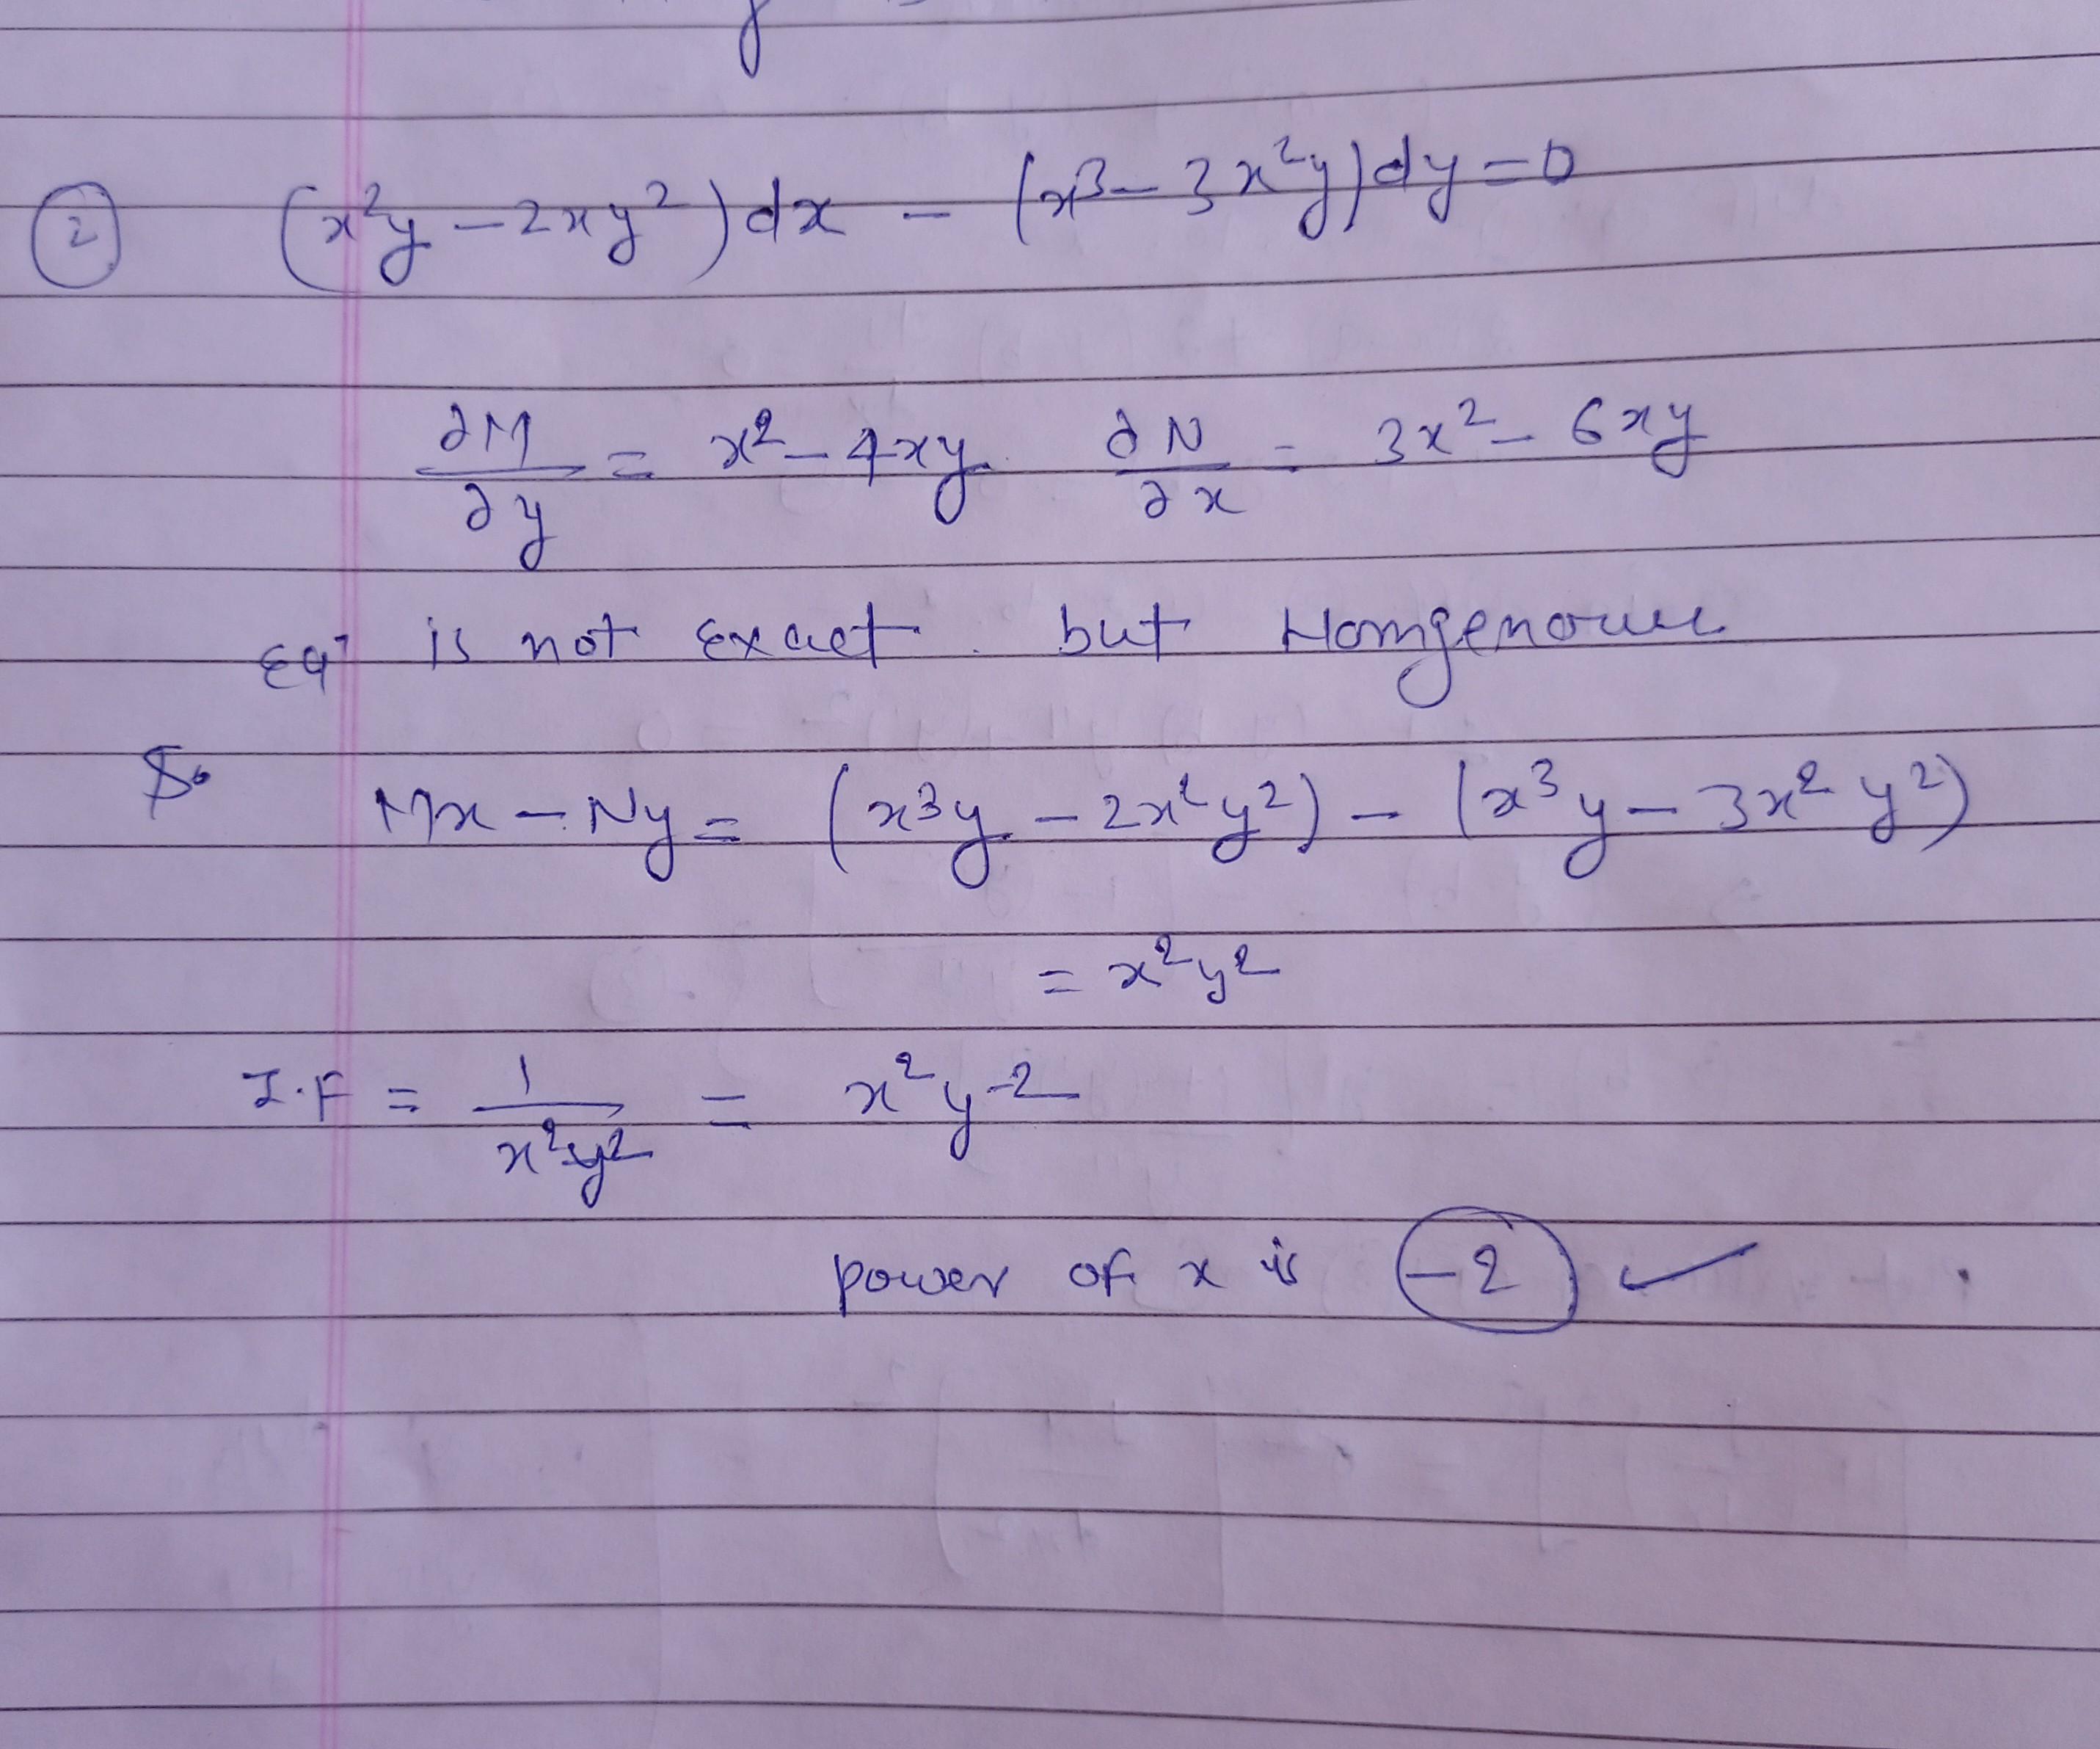 ② (x²y - 2xy²)dx - (x³ - 3x²y)dy = 0
∂M/∂y = x² - 4xy ∂N/∂x = 3x² - 6xy
Eqⁿ is not Exact. but Homgenoue
So Mx - Ny = (x³y - 2x²y²) - (x³y - 3x²y²)
= x²y²
I.F = 1/x²y² = x²y-2
power of x is -2 ✓